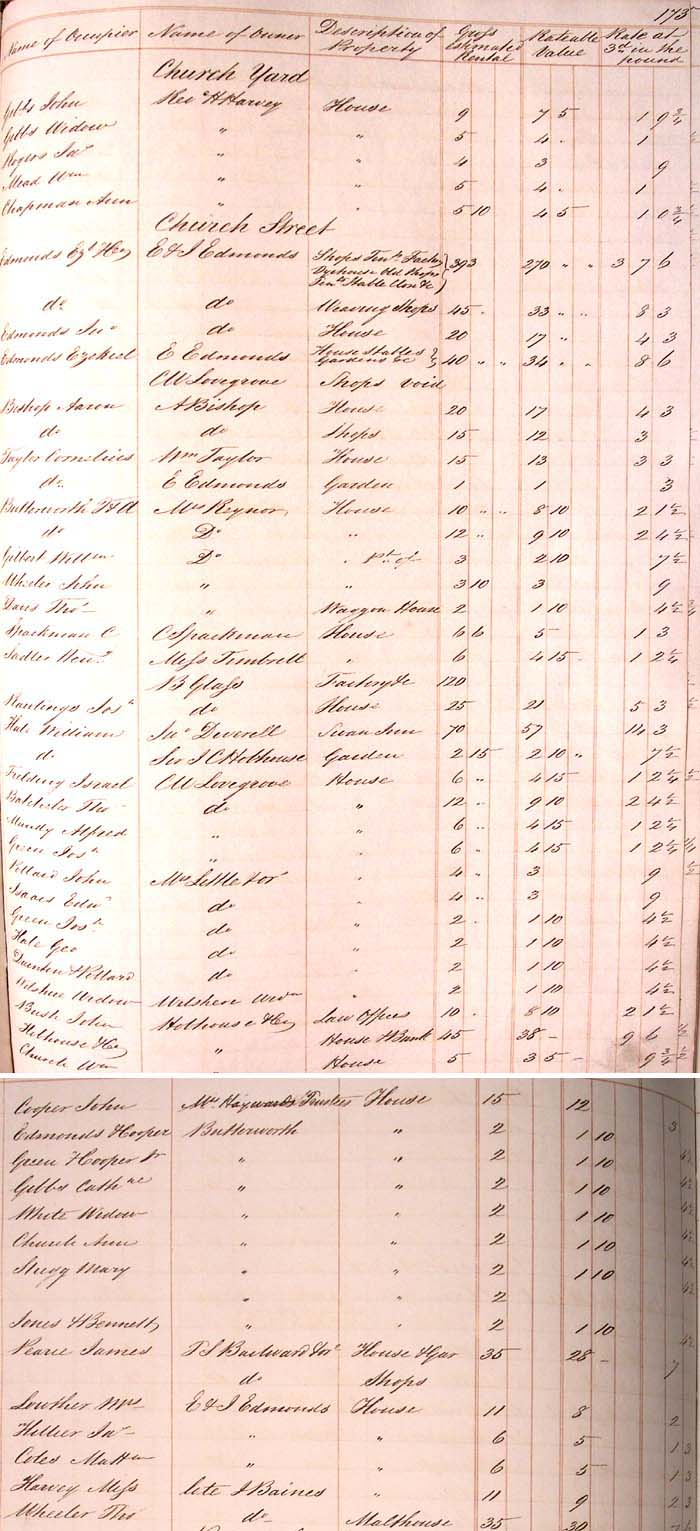 173
Name of Occupier Name of Owner Description of Property Gross Estimated Rental Rateable Value Rate at 3d in the pound
Church Yard
Gibbs John Revd H Harvey House 9 7 5 1 9 3/4
Gibbs Widow " " 5 4 . 1
Rogers Jas " " 4 3 9
Mead Wm " " 5 4 . 1
Chapman Ann " " 5 10 4 5 1 0 3/4
Church Street
Edmonds Ezl & Co E & J Edmonds Shops Factory 393 270 " " 3 7 6
Dyehouse Old Shops
Stable &c
do do Weaving Shops 45 . 33 " " 8 3
Edmonds Jno do House 20 17 " . 4 3
Edmonds Ezekiel E Edmonds House Stables Gardens &c 40 " " 34 " . 8 6
C W Lovegrove Shops void
Bishop Aaron A Bishop House 20 17 4 3
do do Shops 15 12 3
Taylor Cornelius Wm Taylor House 15 13 3 3
do E Edmonds Garden 1 1 3
Butterworth T & A Mrs Reynor House 10 " " 8 10 2 1 1/2
do Do " 12 " 9 10 2 4 1/2
Gilbert Willm Do " Pt of 3 2 10 7 1/2
Wheeler John " " 3 10 3 9
Davis Thos " Waggon House 2 1 10 4 1/2
Spackman C C Spackman House 6 6 5 1 3
Sadler Hen Mess Timbrell " 6 4 15 1 2 1/4
N B Glass Factory &c 120
Rawlings Josh do House 25 21 5 3
Hale William Jno Deverell Swan Inn 70 57 14 3
do Sir J C Hobhouse Garden 2 15 2 10 " 7 1/2
Fielding Israel C W Lovegrove House 6 " 4 15 1 2 1/4
Batchelor Thos do " 12 . 9 10 2 4 1/2
Mundy Alfred " " 6 " 4 15 1 2 1/4
Green Josh " . 6 " 4 15 1 2 1/4
Pillard John Mrs Little " 4 " 3 9
Isaacs Edwd do . 4 " 3 9
Green Josh do " 2 . 1 10 4 1/2
Hale Geo do " 2 1 10 4 1/2
Pillard do " 2 1 10 4 1/2
Wilshire Widow Wilshere Wm . 2 1 10 4 1/2
Bush John Hobhouse & Co Law Offices 10 . 8 10 2 1 1/2
Hobhouse & Co " House & Bank 45 38 - 9 6
Church Wm House 5 3 5 - 9 3/4
Cooper John Mrs Haywards Trustees House 15 12 3
Edmonds Hooper Butterworth " 2 1 10 4 1/2
Green Hooper Jr " " 2 1 10 4 1/2
Gibbs Cathne " " 2 1 10 4 1/2
White Widow " " 2 1 10 4 1/2
Church Ann " " 2 1 10 4 1/2
Stegg Mary " " 2 1 10 4 1/2
" " 2
Jones & Bennett " " 2 1 10 4 1/2
Pearce James House & Gar 35 28 - 7
do Shops
Lowther Mrs E & J Edmonds House 11 8 2
Hillier Jas " " 6 5 1 3
Coles Matt " " 6 5 1 3
Harvey Mess late J Baines " 11 9 2 3
Wheeler Thos do Malthouse 35 30 7 6